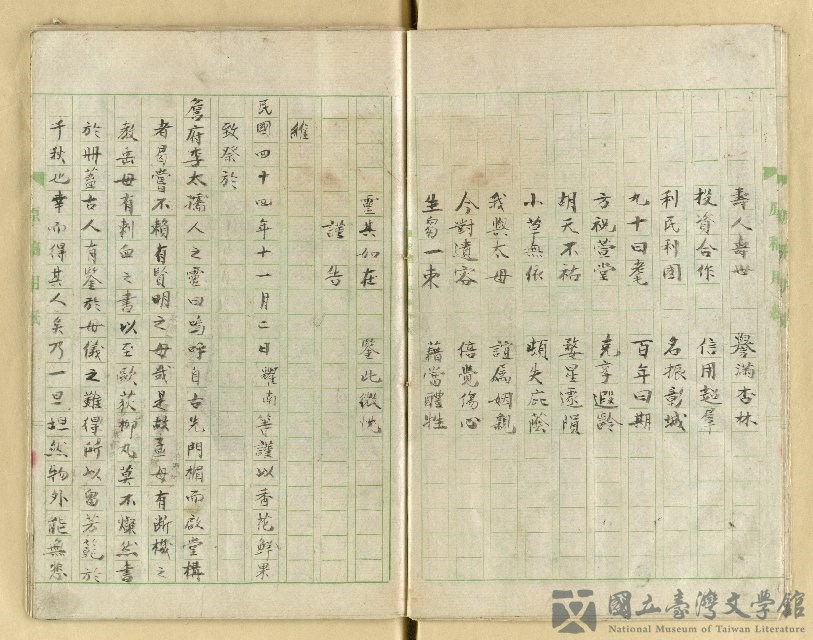 壽人壽世　譽滿杏林
投資合作　信用超羣
利民利國　名振彰城
九十曰耄　百年曰期
方祝萱堂　克享遐齡
胡天不祐　婺星遽隕
小草無依　頓失庇蔭
我與太母　誼屬姻親
今對遺容　倍覺傷心
生芻一束　藉當醴牲
靈其如在　鑒此微忱
謹告
維
民國四十四年十一月二日耀南等謹以香花鮮果
致祭於
詹府李太孺人之靈曰嗚呼自古光門楣而啟堂構
者曷嘗不賴有賢明之母哉是故孟母有断機之
教岳母有刺血之書以至歐荻柳丸莫不燦然書
於册蓋古人有鑒於母儀之難得所以留芳範於
千秋也幸而得其人矣乃一旦坦然物外能無悲
國立臺灣文學館
National Museum of Taiwan Literature